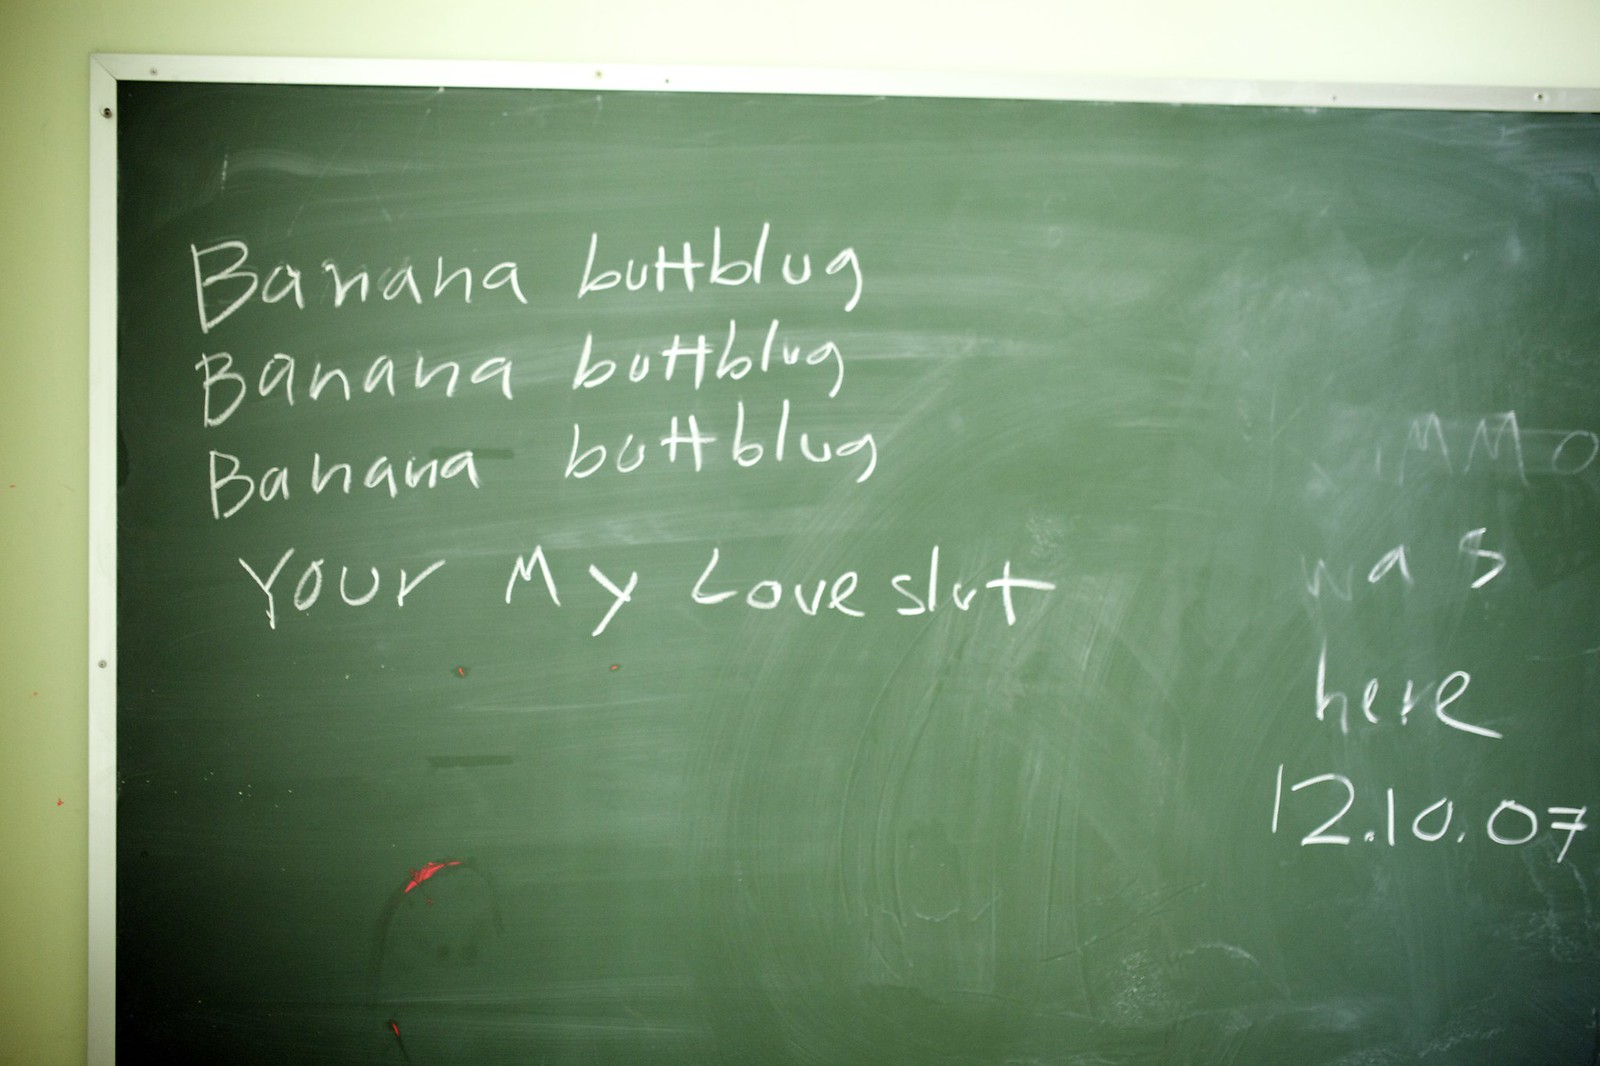 Banana buttblug
Banana buttblug
Banana buttblug
Your My Love slut
was
here
12.10.07